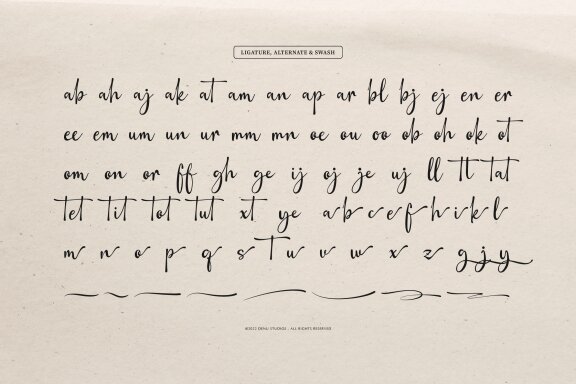 LIGATURE, ALTERNATE & SWASH
ab ah aj ak at am an ap ar bl bj ej en er
ee em um un ur mm mn oe ou oo ob oh ok ot
om on or ff gh ge ij oj je uj ll tt tat
tet tit tot tut xt ye a b c e f h i k l
m n o p q s t u v w x z g j y
©2022 DENU STUDIOS . ALL RIGHTS RESERVED